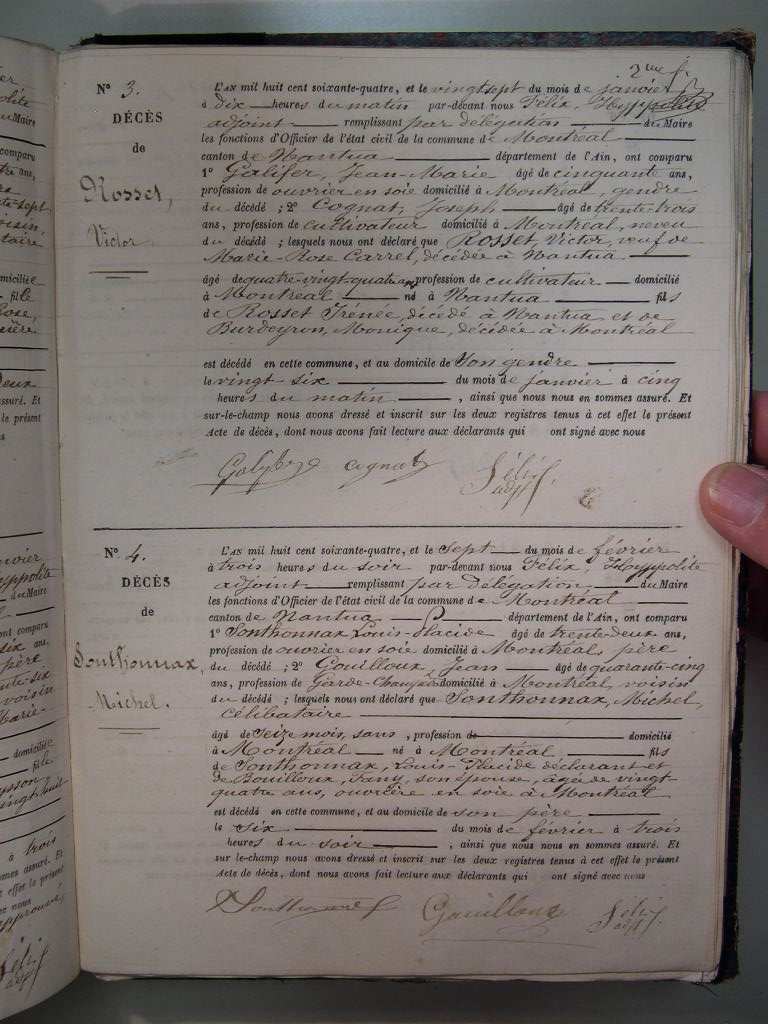 2me f.
N° 3.
DÉCÈS
de
Rosset,
Victor
L'AN mil huit cent soixante-quatre, et le vingt sept du mois de janvier
à dix heures du matin par-devant nous Félix, Hyppolite
adjoint remplissant par délégation du Maire
les fonctions d'Officier de l'état civil de la commune de Montréal
canton de Nantua département de l'Ain, ont comparu
1° Galifer, Jean-Marie âgé de cinquante ans,
profession de ouvrier en soie domicilié à Montréal, gendre
du décédé ; 2° Cognat, Joseph âgé de trente-trois
ans, profession de cultivateur domicilié à Montréal, neveu
du décédé ; lesquels nous ont déclaré que Rosset, Victor, veuf de
Marie-Rose Carrel, décédée à Nantua
âgé de quatre-vingt-quatre ans profession de cultivateur domicilié
à Montréal né à Nantua fils
de Rosset Irénée, décédé à Nantua et de
Burdeyron, Monique, décédée à Montréal
est décédé en cette commune, et au domicile de Son gendre
le vingt-six du mois de janvier à cinq
heures du matin , ainsi que nous nous en sommes assuré. Et
sur-le-champ nous avons dressé et inscrit sur les deux registres tenus à cet effet le présent
Acte de décès, dont nous avons fait lecture aux déclarants qui ont signé avec nous
cognat Félix
adj
N° 4.
DÉCÈS
de
Sonthonnax,
Michel.
L'AN mil huit cent soixante-quatre, et le Sept du mois de février
à trois heures du soir par-devant nous Félix, Hyppolite
adjoint remplissant par délégation du Maire
les fonctions d'Officier de l'état civil de la commune de Montréal
canton de Nantua département de l'Ain, ont comparu
1° Sonthonnax Louis-Placide âgé de trente-deux ans,
profession de ouvrier en soie domicilié à Montréal, père
du décédé ; 2° Gouilloux, Jean âgé de quarante-cinq
ans, profession de Garde-Champêtre domicilié à Montréal, voisin
du décédé ; lesquels nous ont déclaré que Sonthonnax, Michel,
célibataire
âgé de Seize mois, sans , profession de domicilié
à Montréal né à Montréal fils
de Sonthonnax, Louis-Placide déclarant et
de Bouilloux, Fany, son épouse, âgée de vingt-
quatre ans, ouvrière en soie à Montréal
est décédé en cette commune, et au domicile de son père
le Six du mois de février à trois
heures du soir , ainsi que nous nous en sommes assuré. Et
sur-le-champ nous avons dressé et inscrit sur les deux registres tenus à cet effet le présent
Acte de décès, dont nous avons fait lecture aux déclarants qui ont signé avec nous
Sonthonnax Gouilloux Félix
adj